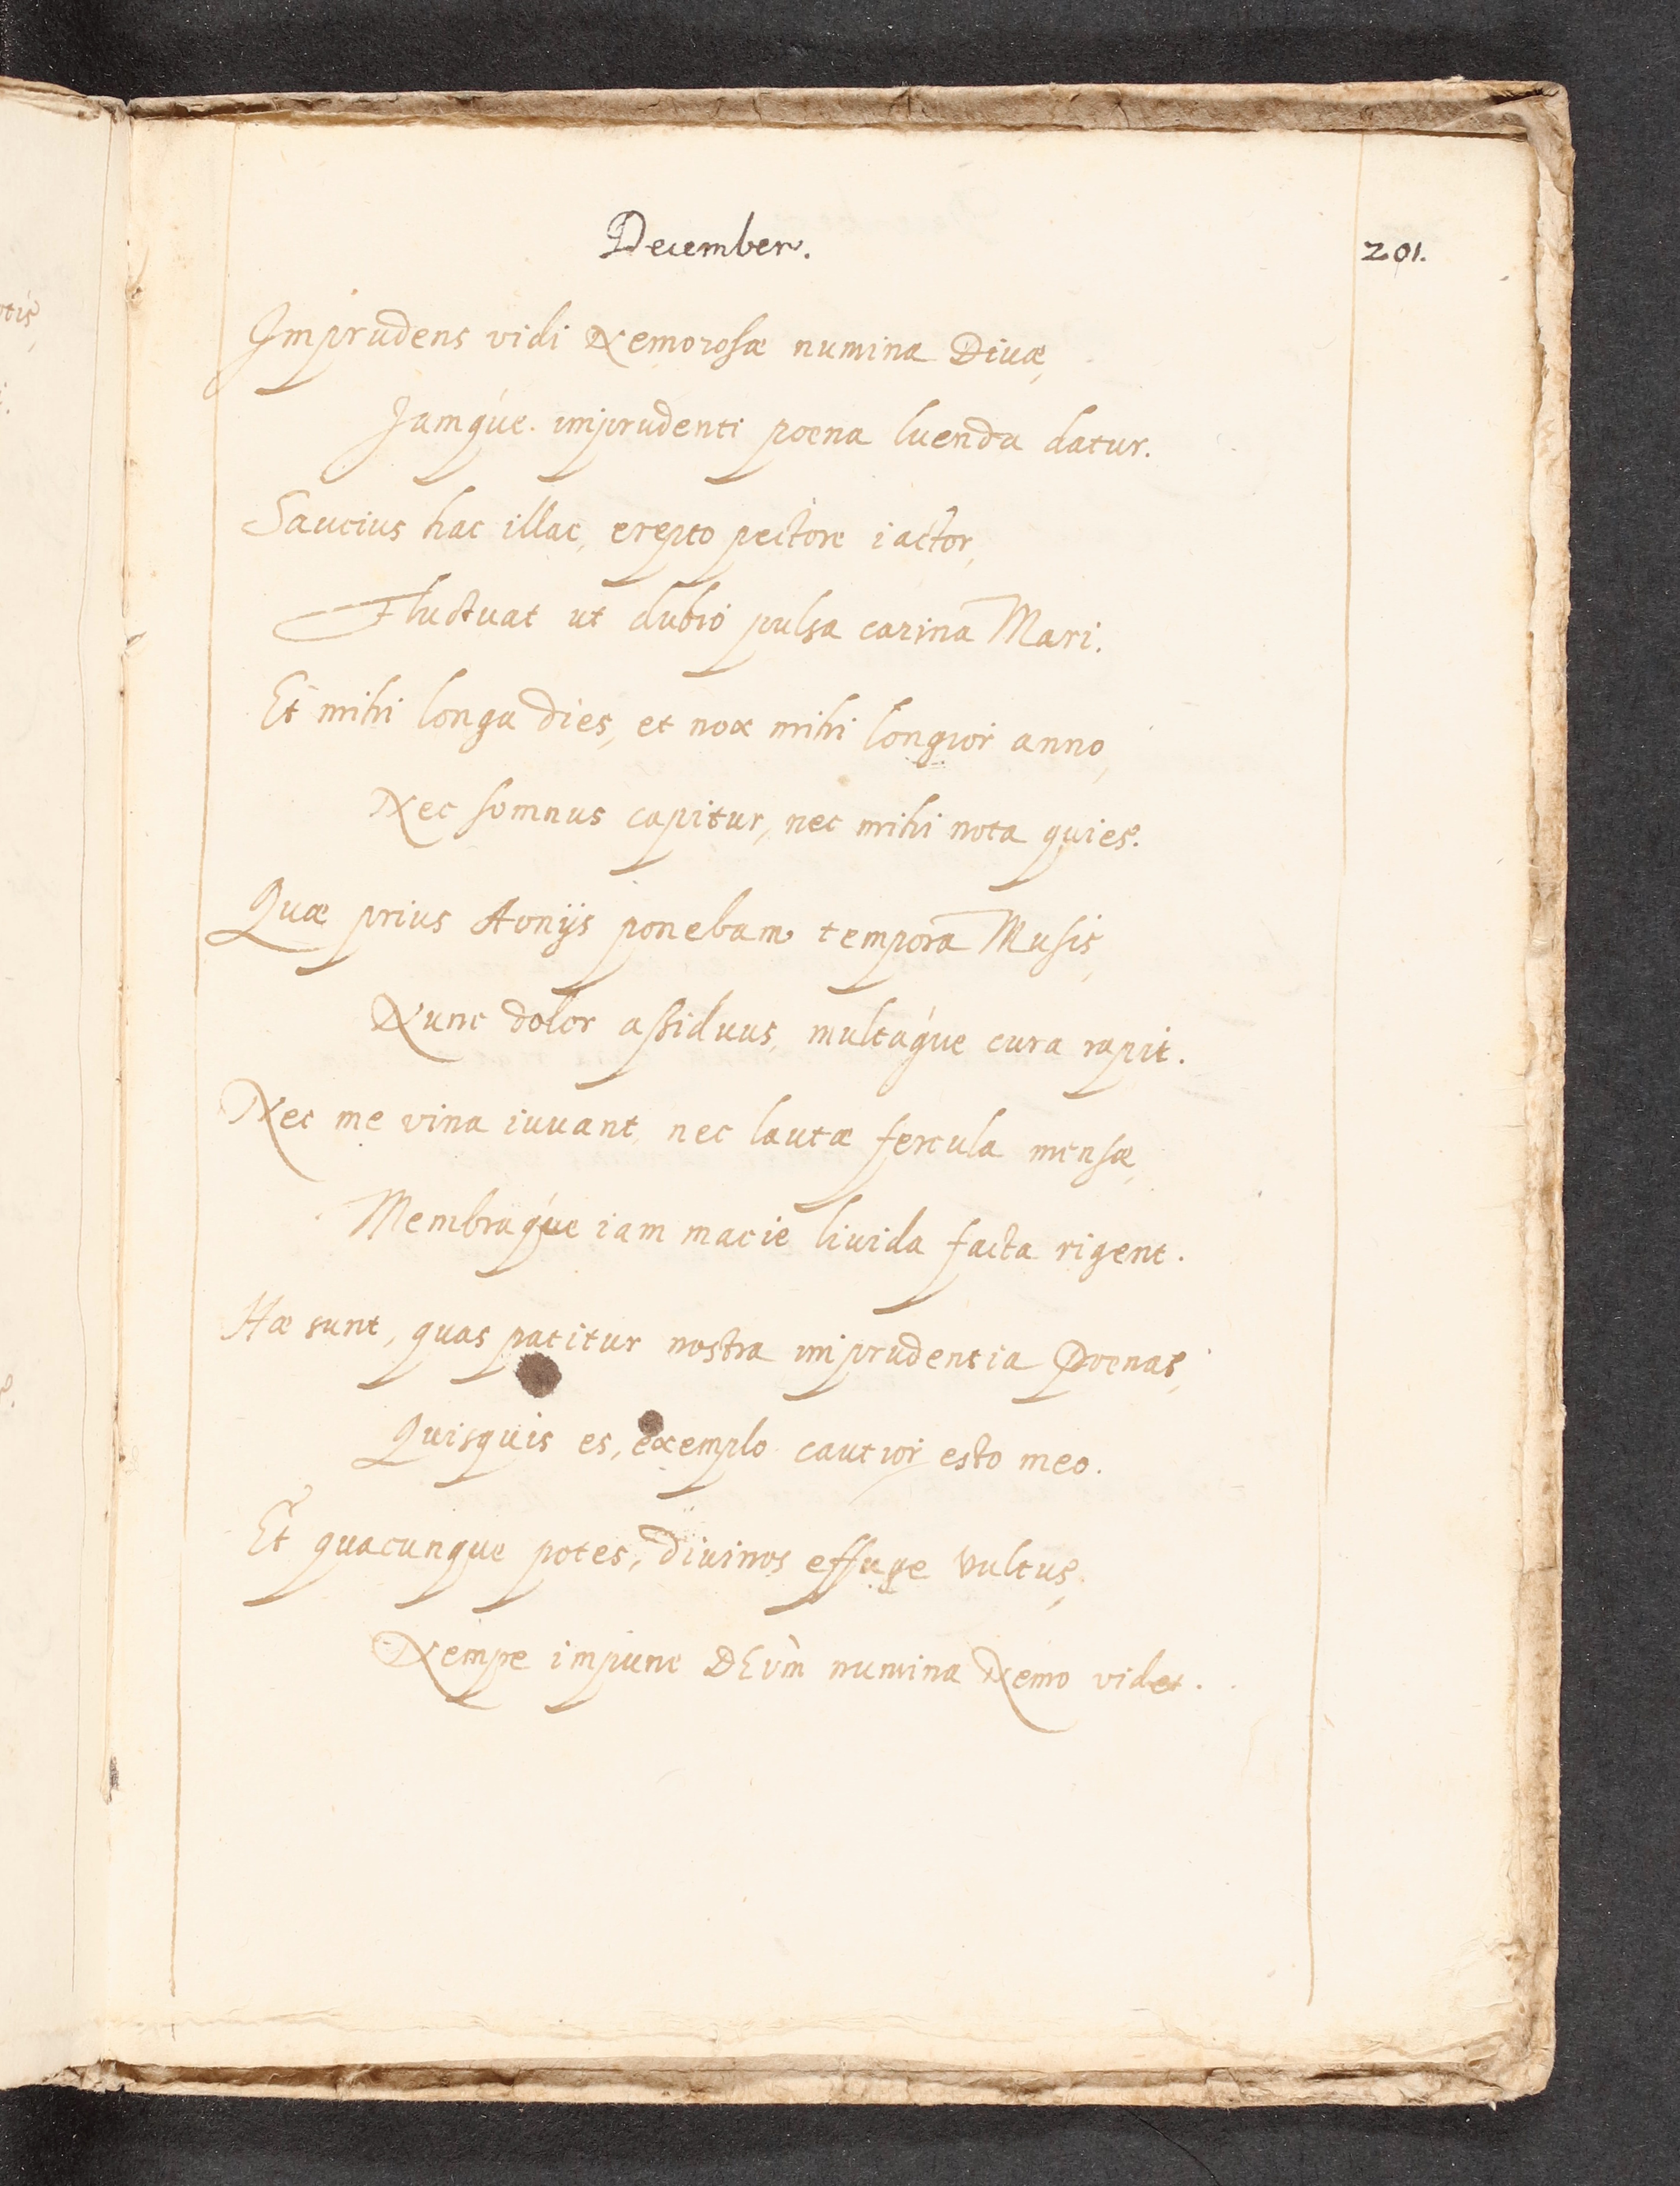 December.
201.
Imprudens vidi Nemorosæ numina Divæ,
Jamque. imprudenti poena luenda datur.
Saucius hac illac, erepto pectore iactor,
Fluctuat ut dubio pulsa carina Mari.
Et mihi longa dies, et nox mihi longior anno,
Nec somnus capitur, nec mihi nota quies.
Quæ prius Aonijs ponebam tempora Musis,
Nunc dolor aßiduus, multáque cura rapit.
Nec me vina iuuant, nec lautæ fercula mensæ,
Membráque iam macie liuida facta rigent.
Hæ sunt, quas patitur nostra imprudentia Poenas,
Quisquis es, exemplo cautior esto meo.
Et quacunque potes, diuinos effuge vultus,
Nempe impune DEûm numina Nemo videt.